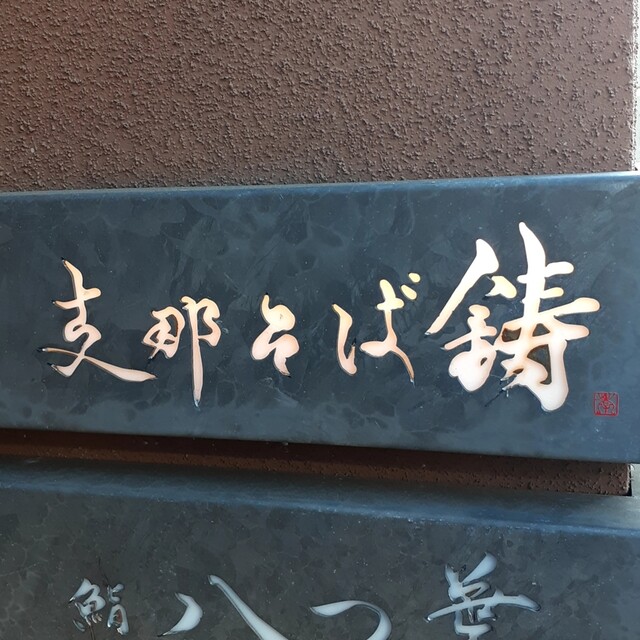 支那そば鋳
鮨八つ華